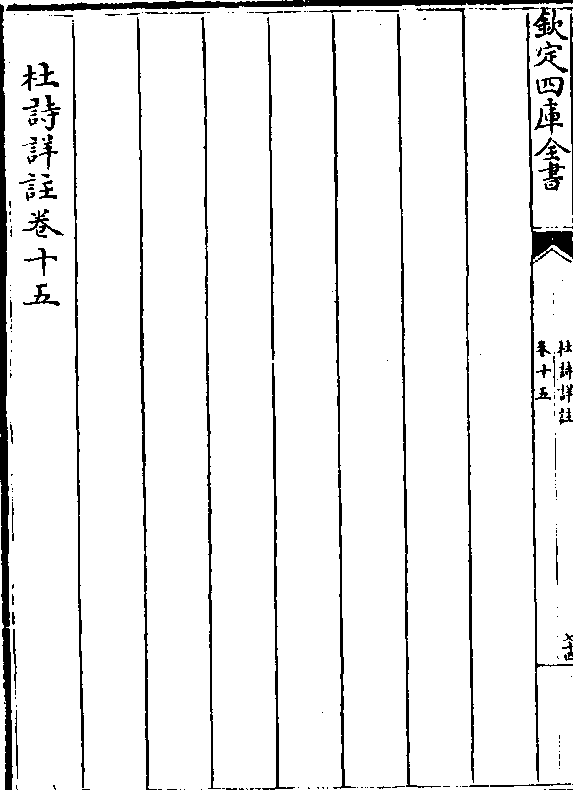 欽定四庫全書
杜詩詳註
卷十五
七十四
杜詩詳註卷十五